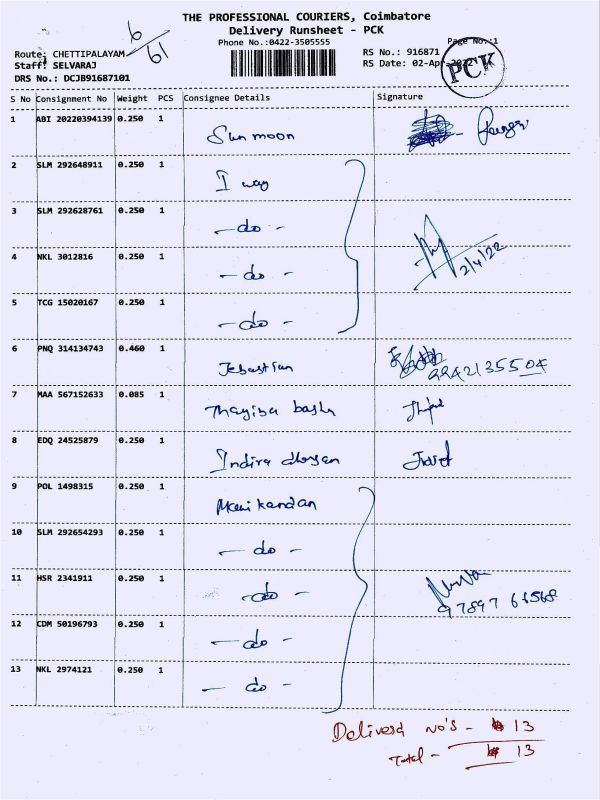 THE PROFESSIONAL COURIERS, Coimbatore
Delivery Runsheet - PCK
Phone No.:0422-3505555
Page No.:1
6/61
Route: CHETTIPALAYAM
Staff: SELVARAJ
DRS No.: DCJB91687101
RS No.: 916871
RS Date: 02-Apr-2022
PCK
S No Consignment No Weight PCS Consignee Details Signature
1 ABI 20220394139 0.250 1 Sun moon
2 SLM 292648911 0.250 1 I way
3 SLM 292628761 0.250 1 - do -
4 NKL 3012816 0.250 1 - do -
2/4/22
5 TCG 15020167 0.250 1 - do -
6 PNQ 314134743 0.460 1 Jebastian
9942135504
7 MAA 567152633 0.085 1 Thayiba basha
8 EDQ 24525879 0.250 1 Indira
9 POL 1498315 0.250 1 Manikandan
10 SLM 292654293 0.250 1 - do -
11 HSR 2341911 0.250 1 - do -
97897 66568
12 CDM 50196793 0.250 1 - do -
13 NKL 2974121 0.250 1 - do -
Deliverd No's - 13
Total - 13